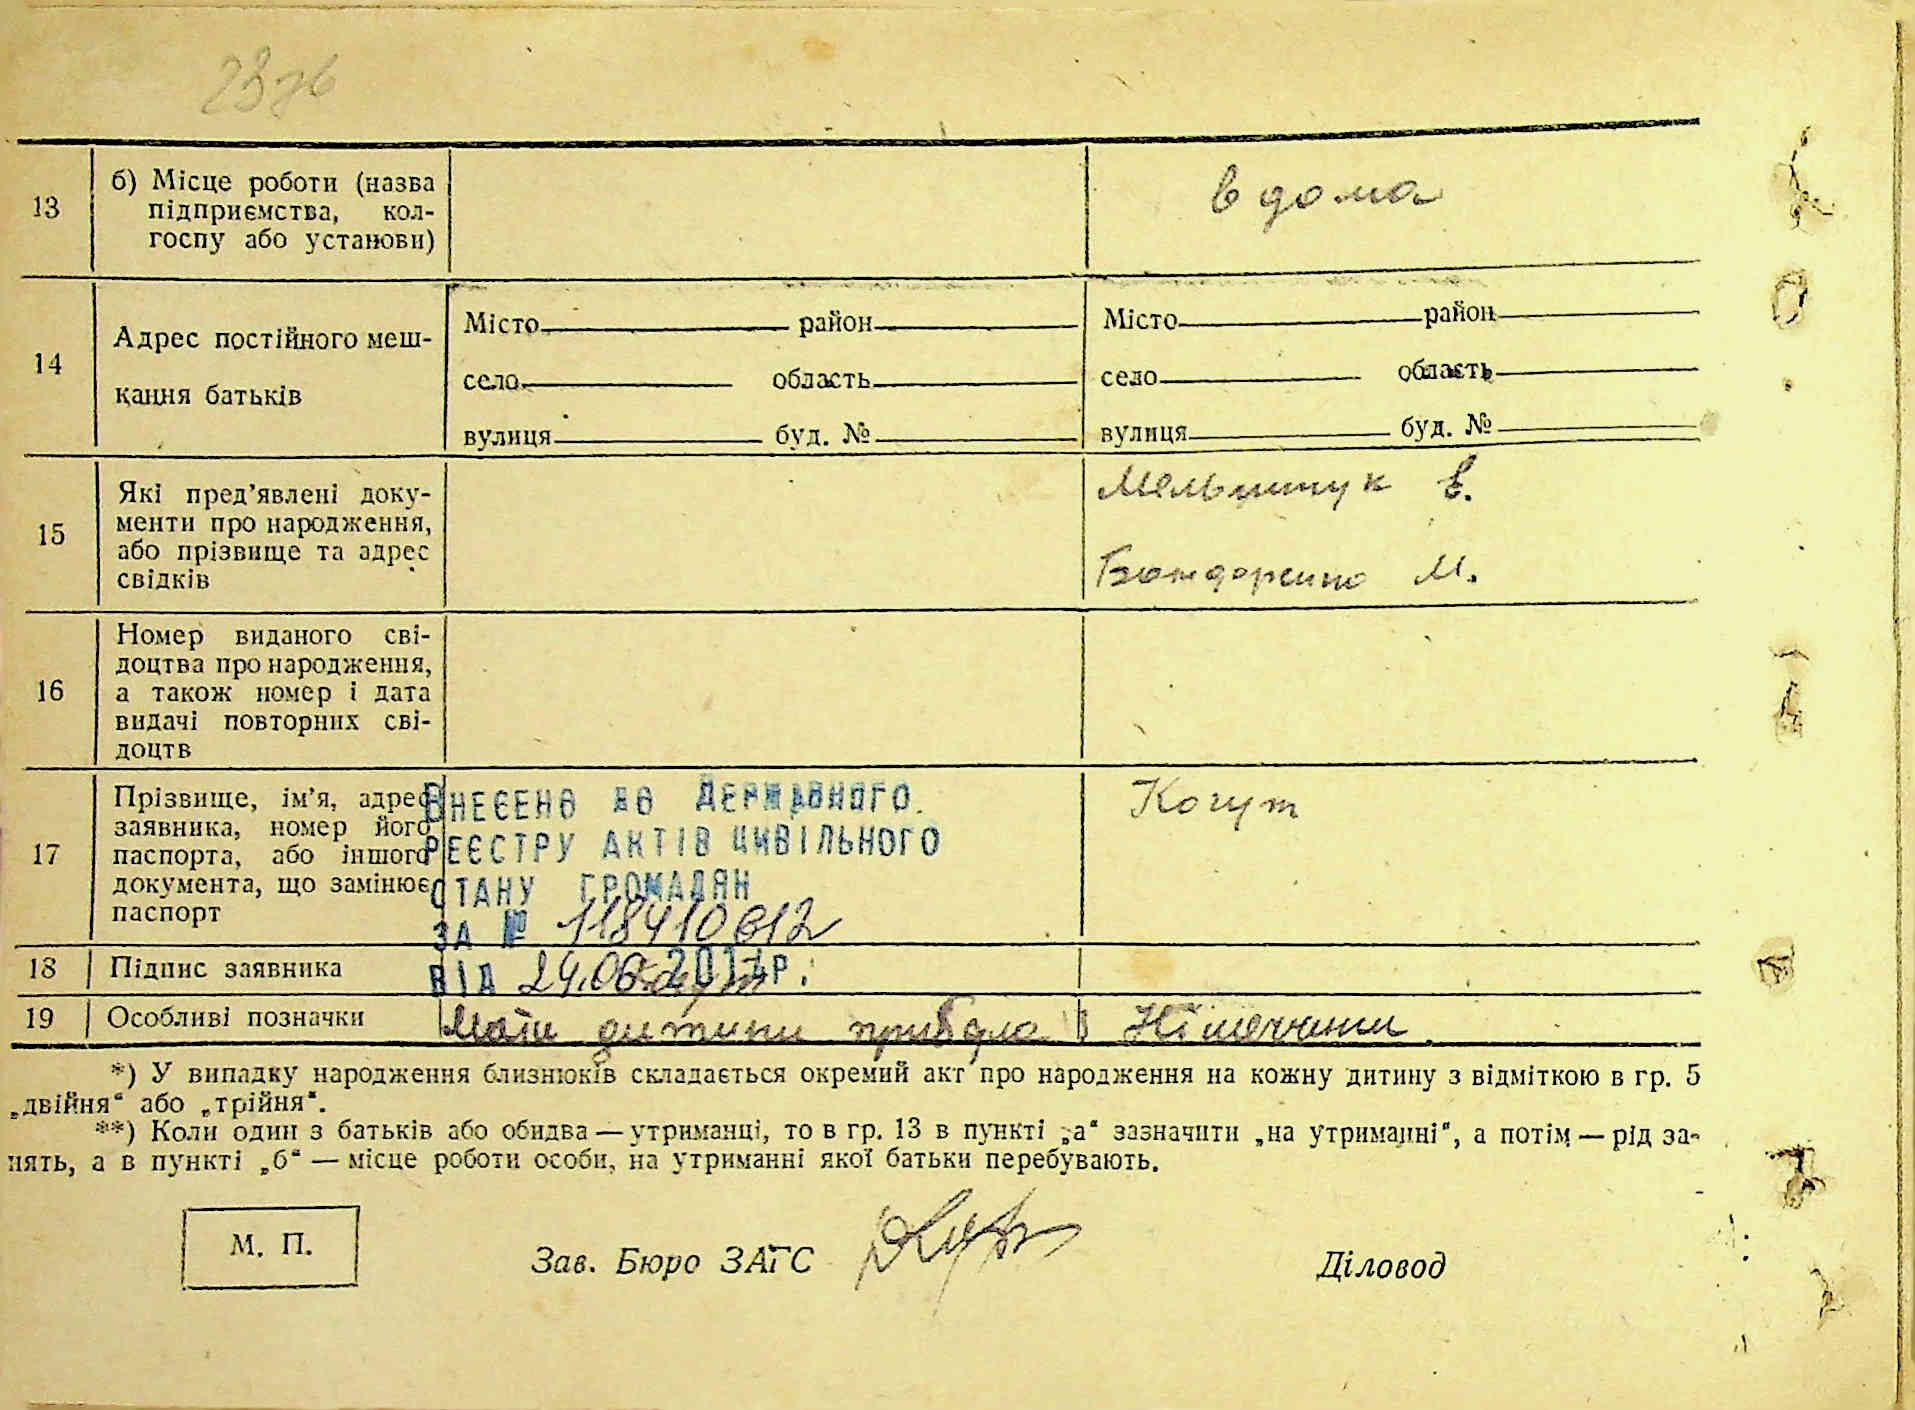 13
б) Місце роботи (назва
підприємства, кол-
госпу або установи)
в дома
14
Адрес постійного меш-
кання батьків
Місто район
село область
вулиця буд. №
Місто район
село область
вулиця буд. №
15
Які пред’явлені доку-
менти про народження,
або прізвище та адрес
свідків
Мельничук Є.
Бондаренко М.
16
Номер виданого сві-
доцтва про народження,
а також номер і дата
видачі повторних сві-
доцтв
17
Прізвище, ім’я, адрес
заявника, номер його
паспорта, або іншого
документа, що замінює
паспорт
ВНЕСЕНО ДО ДЕРЖАВНОГО
РЕЄСТРУ АКТІВ ЦИВІЛЬНОГО
СТАНУ ГРОМАДЯН
ЗА №
ВІД 24.06.2011р.
Когут
18 Підпис заявника
19 Особливі позначки Мати дитини прибула з Німеччини.
*) У випадку народження близнюків складається окремий акт про народження на кожну дитину з відміткою в гр. 5
„двійня“ або „трійня“.
**) Коли один з батьків або обидва — утриманці, то в гр. 13 в пункті „а“ зазначити „на утриманні“, а потім — рід за-
нять, а в пункті „б“ — місце роботи особи, на утриманні якої батьки перебувають.
М. П.
Зав. Бюро ЗАГС
Діловод